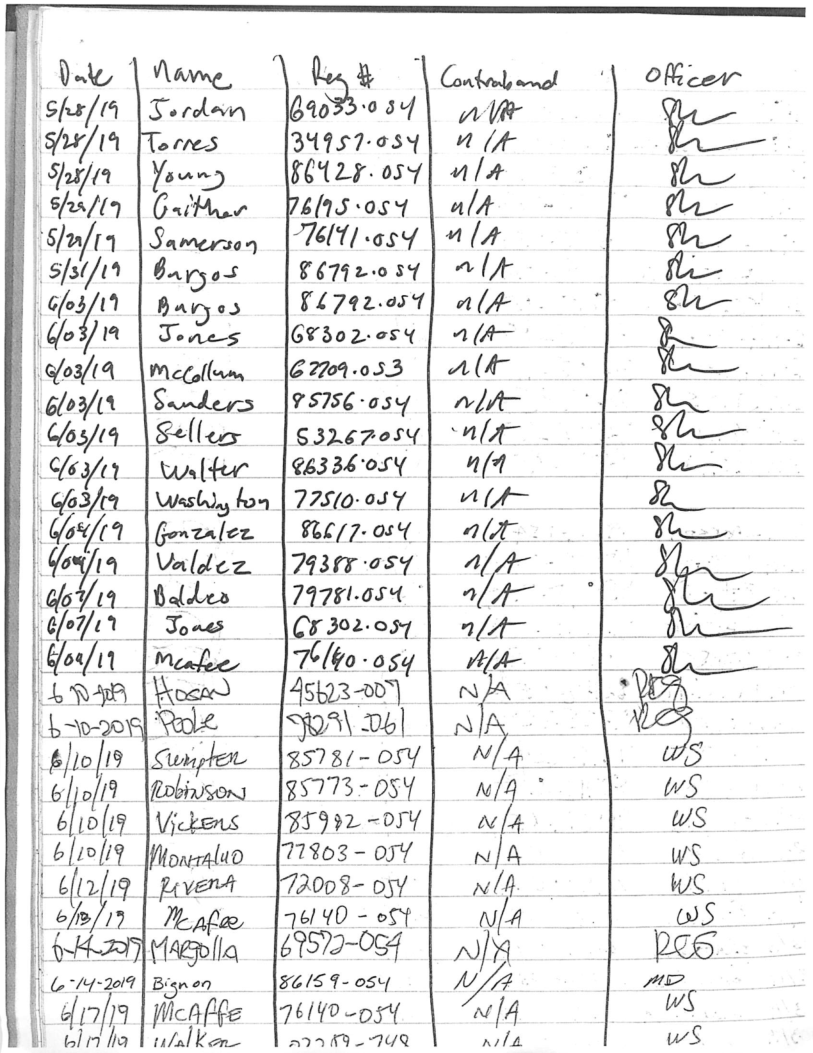 Date Name Reg # Contraband Officer
5/28/19 Jordan 69033.054 n/A
5/28/19 Torres 34957.054 n/A
5/28/19 Young 86428.054 n/A
5/29/19 Gaither 76195.054 n/A
5/29/19 Samerson 76141.054 n/A
5/31/19 Burgos 86792.054 n/A
6/03/19 Burgos 86792.054 n/A
6/03/19 Jones 68302.054 n/A
6/03/19 McCollum 62709.053 n/A
6/03/19 Sanders 85756.054 n/A
6/03/19 Sellers 53267.054 n/A
6/03/19 Walter 86336.054 n/A
6/03/19 Washington 77510.054 n/A
6/04/19 Gonzalez 86617.054 n/A
Valdez 79388.054 n/A
6/07/19 Baldeo 79781.054 n/A
6/07/19 Jones 68302.054 n/A
6/09/19 Mcafee 76140.054 n/A
6-10-2019 HOSAN 45623-007 N/A RCG
6-10-2019 Poole N/A RCG
6/10/19 Sumpter 85781-054 N/A WS
6/10/19 ROBINSON 85773-054 N/A WS
6/10/19 Vickens N/A WS
6/10/19 MONTALVO 77803-054 N/A WS
6/12/19 RIVERA 72008-054 N/A WS
6/13/19 McAfee 76140-054 N/A WS
6-14-2019 69572-054 N/A RCG
6-14-2019 Bignon 86159-054 N/A MD
6/17/19 McAffe 76140-054 N/A WS
6/17/19 Walker N/A WS